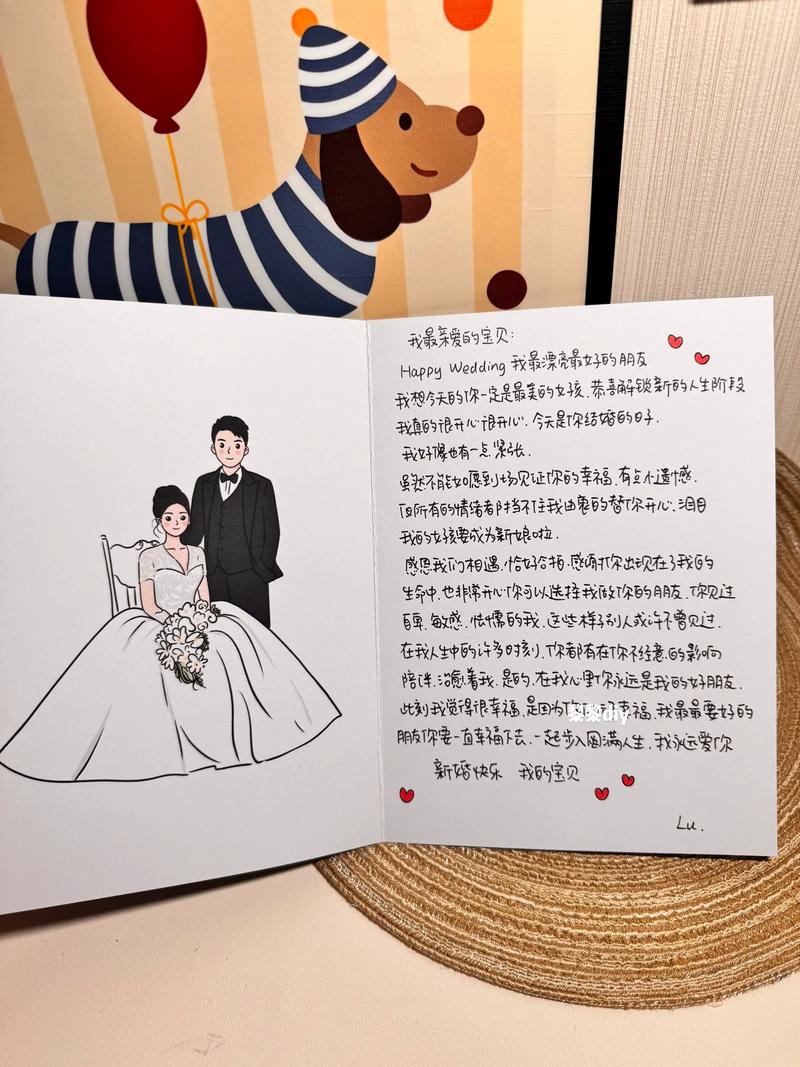 我最亲爱的宝贝:
Happy Wedding 我最漂亮最好的朋友
我想今天的你一定是最美的女孩.恭喜解锁新的人生阶段
我真的很开心很开心.今天是你结婚的日子.
我好像也有一点紧张.
虽然不能如愿到场见证你的幸福.有点小遗憾.
但所有的情绪都挡不住我由衷的替你开心.泪目
我的女孩要成为新娘啦.
感恩我们相遇.恰好合拍.感谢你出现在了我的
生命中.也非常开心你可以选择我做你的朋友.你见过
自卑.敏感.怯懦的我.这些样子别人或许不曾见过.
在我人生中的许多时刻.你都有在你不经意的影响
陪伴.治愈着我.是的.在我心里你永远是我的好朋友.
此刻我觉得很幸福.是因为幸福.我最最要好的
朋友你要一直幸福下去.一起步入圆满人生.我永远爱你
新婚快乐 我的宝贝
Lu.
黎黎diy